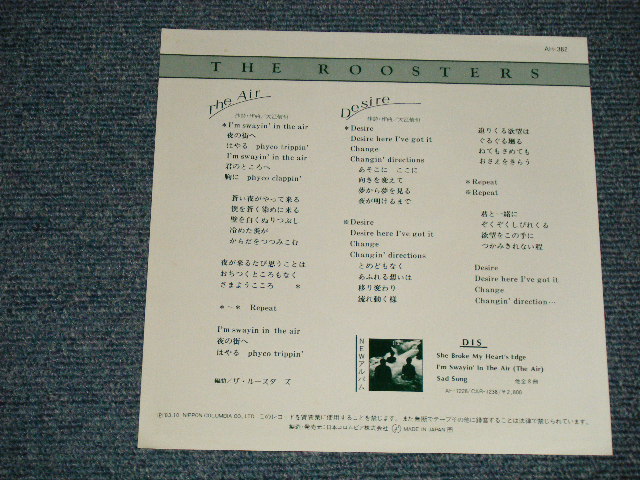 AH-382
THE ROOSTERS
The Air
作詩・作曲／大江慎也
*I'm swayin' in the air
夜の街へ
はやる phyco trippin'
I'm swayin' in the air
君のところへ
胸に phyco clappin'
蒼い夜がやって来る
僕を蒼く染めに来る
壁を白くぬりつぶし
冷めた炎が
からだをつつみこむ
夜が来るたび思うことは
おちつくところもなく
さまようこころ *
*〜* Repeat
I'm swayin in the air
夜の街へ
はやる phyco trippin'
編曲／ザ・ルースターズ
Desire
作詩・作曲／大江慎也
*Desire
Desire here I've got it
Change
Changin' directions
あそこに ここに
向きを変えて
夢から夢を見る
夜が明けるまで
※Desire
Desire here I've got it
Change
Changin' directions
とめどもなく
あふれる想いは
移り変わり
流れ動く様
迫りくる欲望は
ぐるぐる廻る
ねてもさめても
おさえをきらう
*Repeat
※Repeat
君と一緒に
ぞくぞくしびれくる
欲望をこの手に
つかみきれない程
Desire
Desire here I've got it
Change
Changin' direction…
NEWアルバム
DIS
She Broke My Heart's Edge
I'm Swayin' In the Air (The Air)
Sad Song 他全8曲
¥2,800
Ⓟ'83.10 NIPPON COLUMBIA CO., LTD. このレコードを賃貸業に使用することを禁じます。また無断でテープその他に録音することは法律で禁じられています。
製造・発売元：日本コロムビア株式会社 MADE IN JAPAN